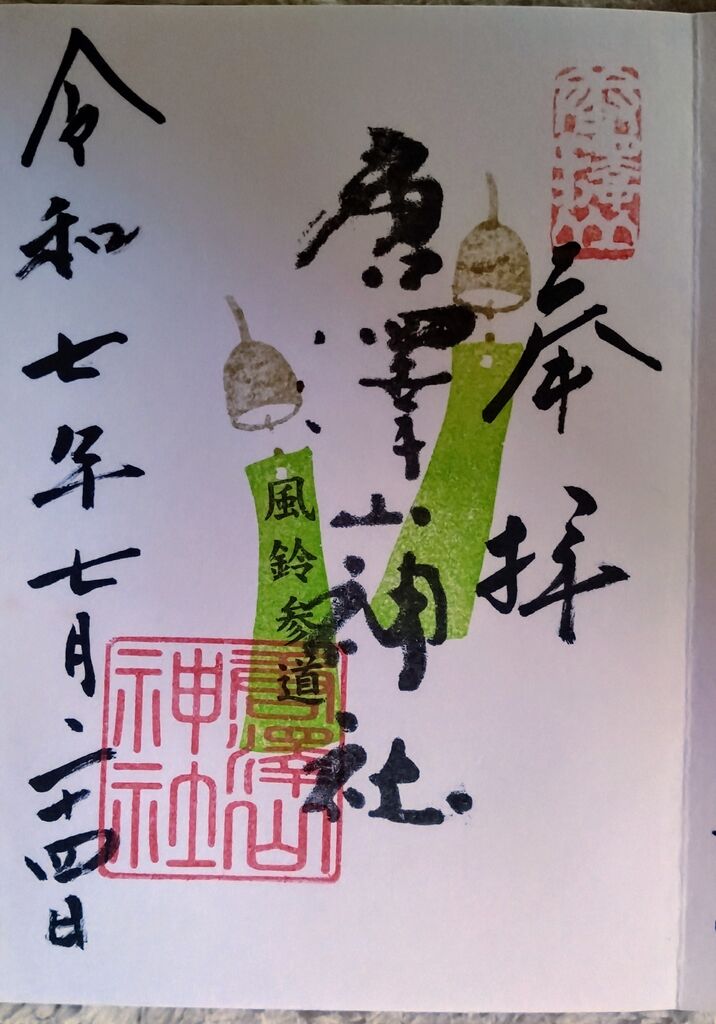 奉拝
唐澤山神社
風鈴参道
唐澤山
神社
令和七年七月二十四日